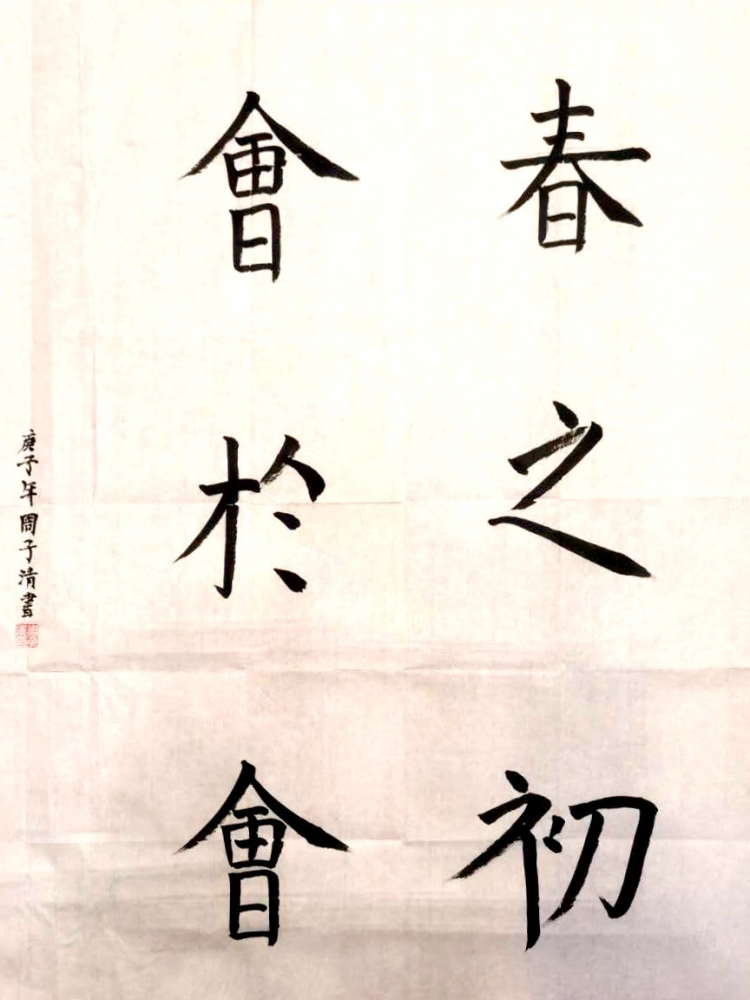 春之初
會於會
庚子年周子清書